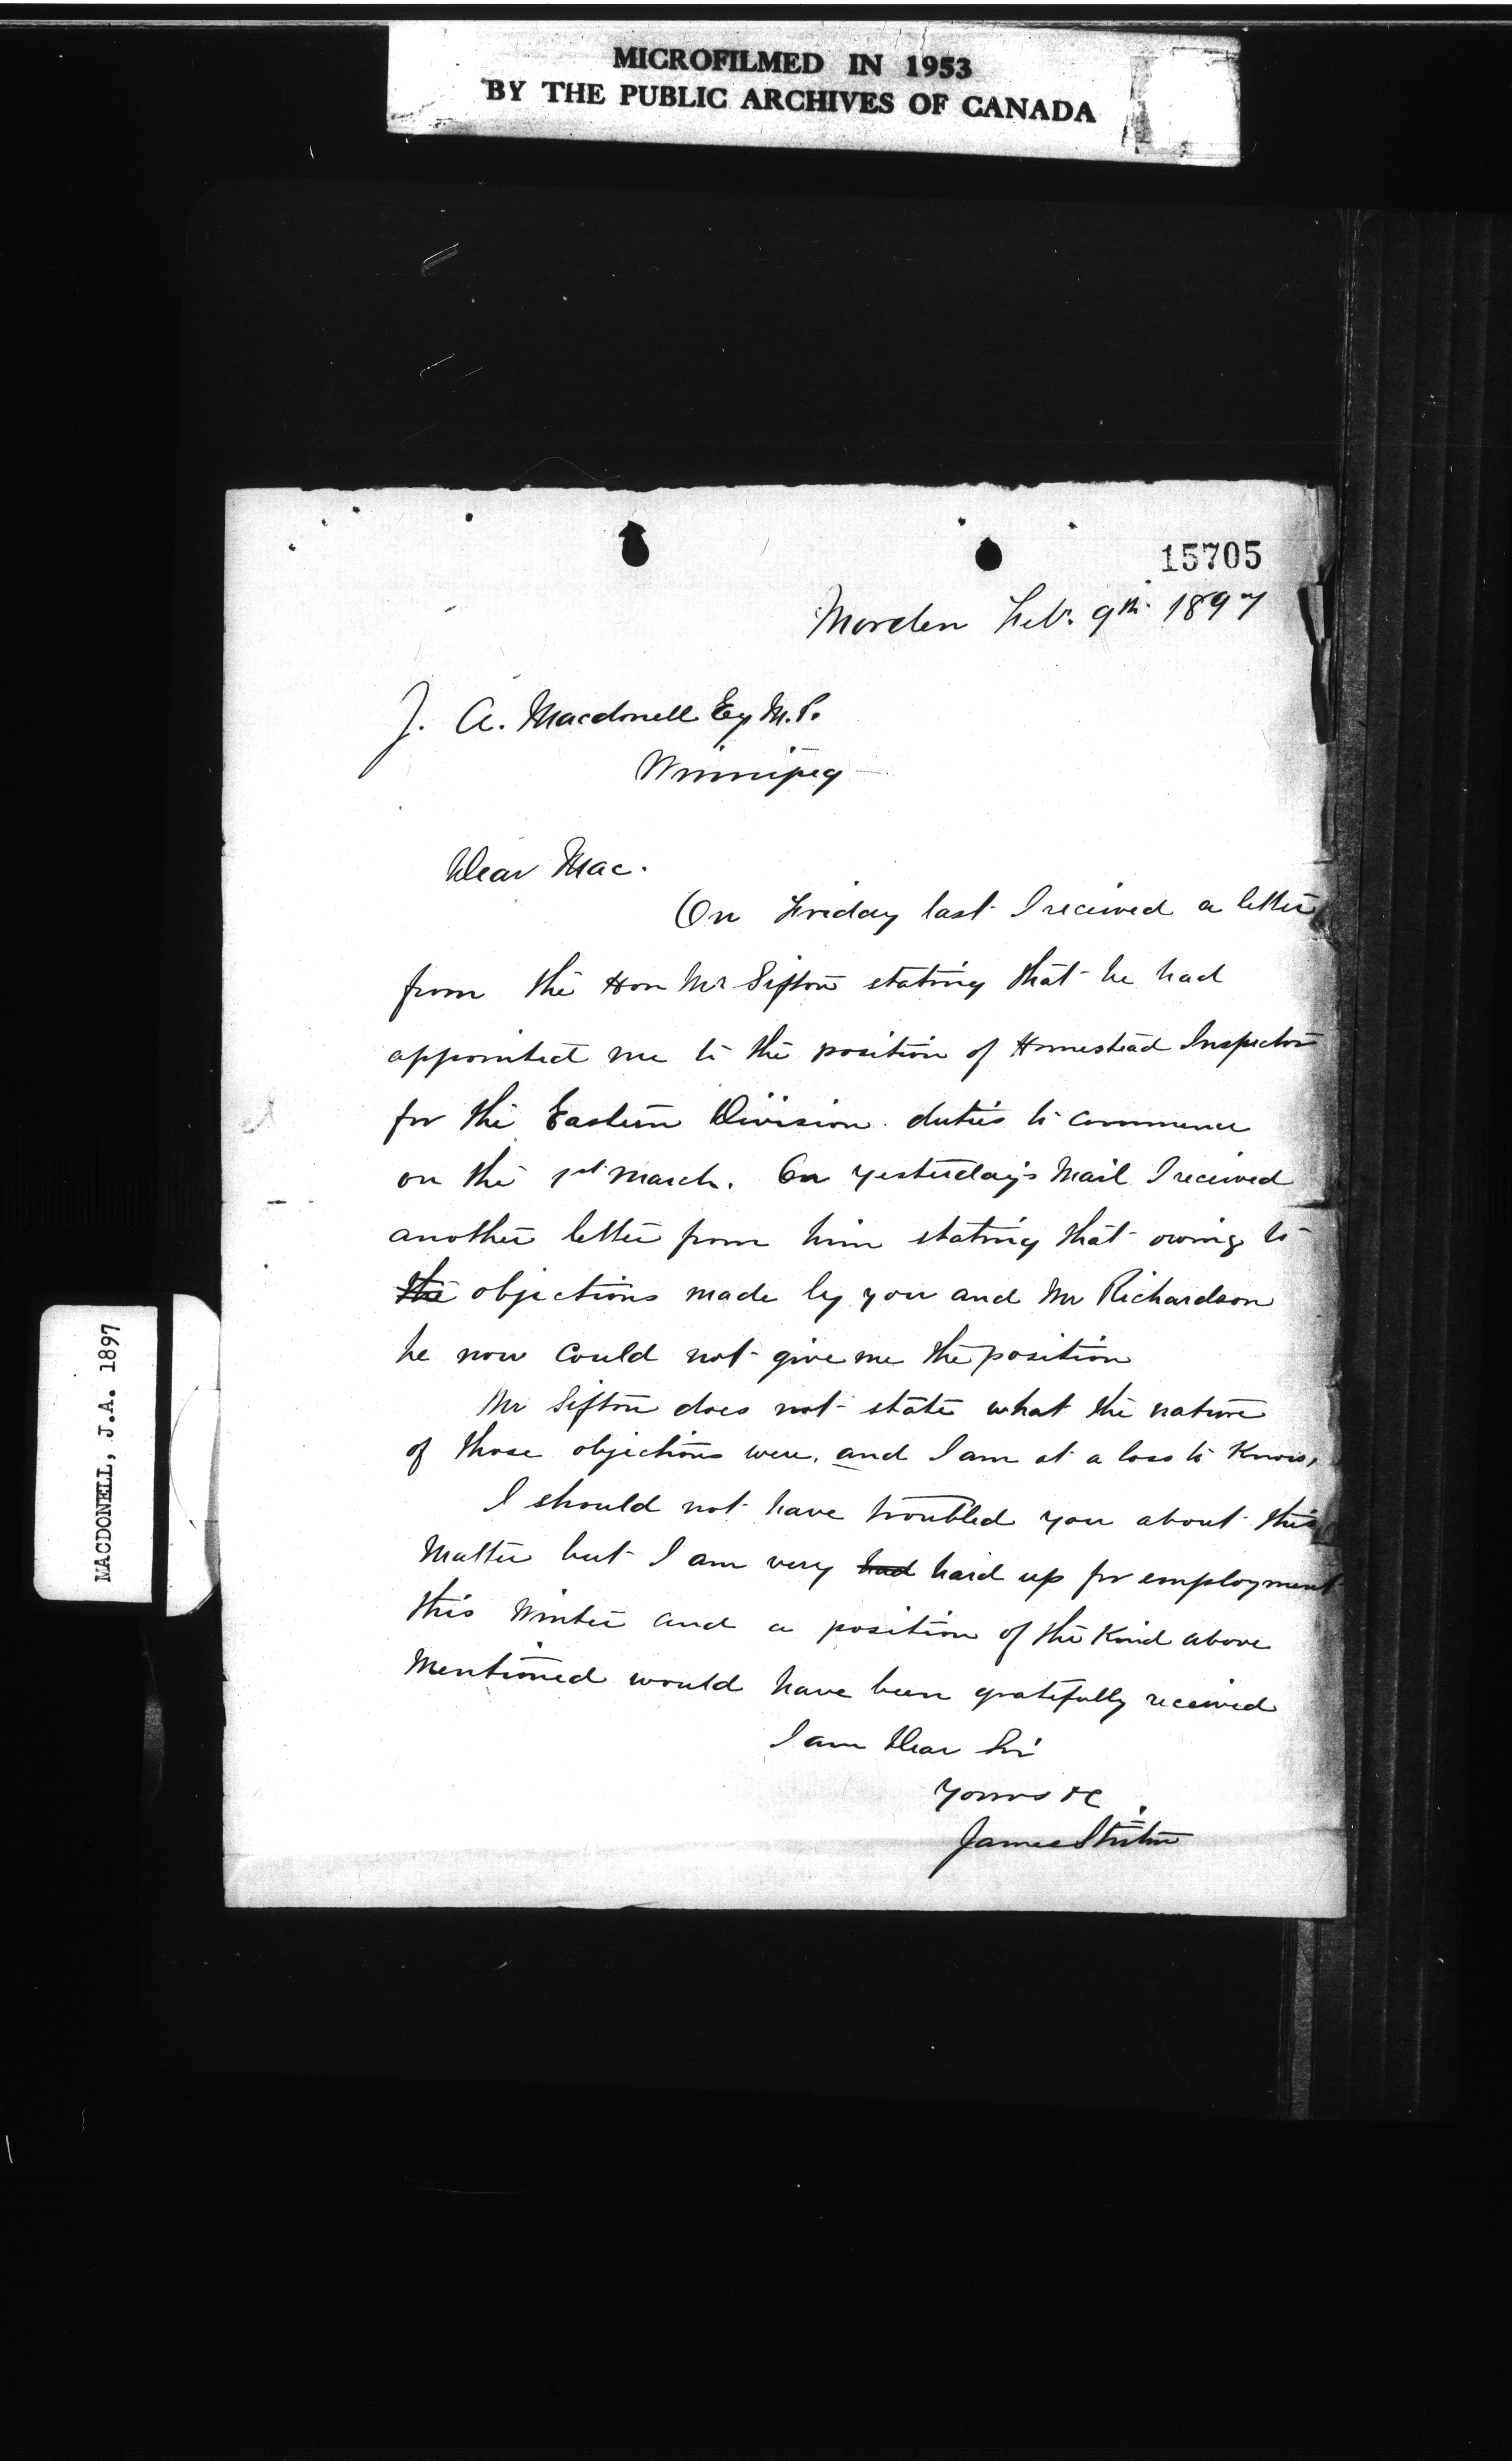 MICROFILMED IN 1953
BY THE PUBLIC ARCHIVES OF CANADA
15705
Morden Feb. 9th. 1897
J. A. Macdonell Esq M.P.
Winnipeg
Dear Mac.
On Friday last I received a letter
from the Hon Mr Sifton stating that he had
appointed me to the position of Homestead Inspector
for the Eastern Division. duties to commence
on the 1st March. On yesterday's Mail I received
another letter from him stating that owing to
the objections made by you and Mr Richardson
he now could not give me the position
Mr Sifton does not state what the nature
of those objections were, and I am at a loss to Know,
I should not have troubled you about this
Matter but I am very had hard up for employment
this Winter and a position of the Kind above
Mentioned would have been gratefully received
I am Dear Sir
Yours &c
James
MACDONELL, J.A. 1897